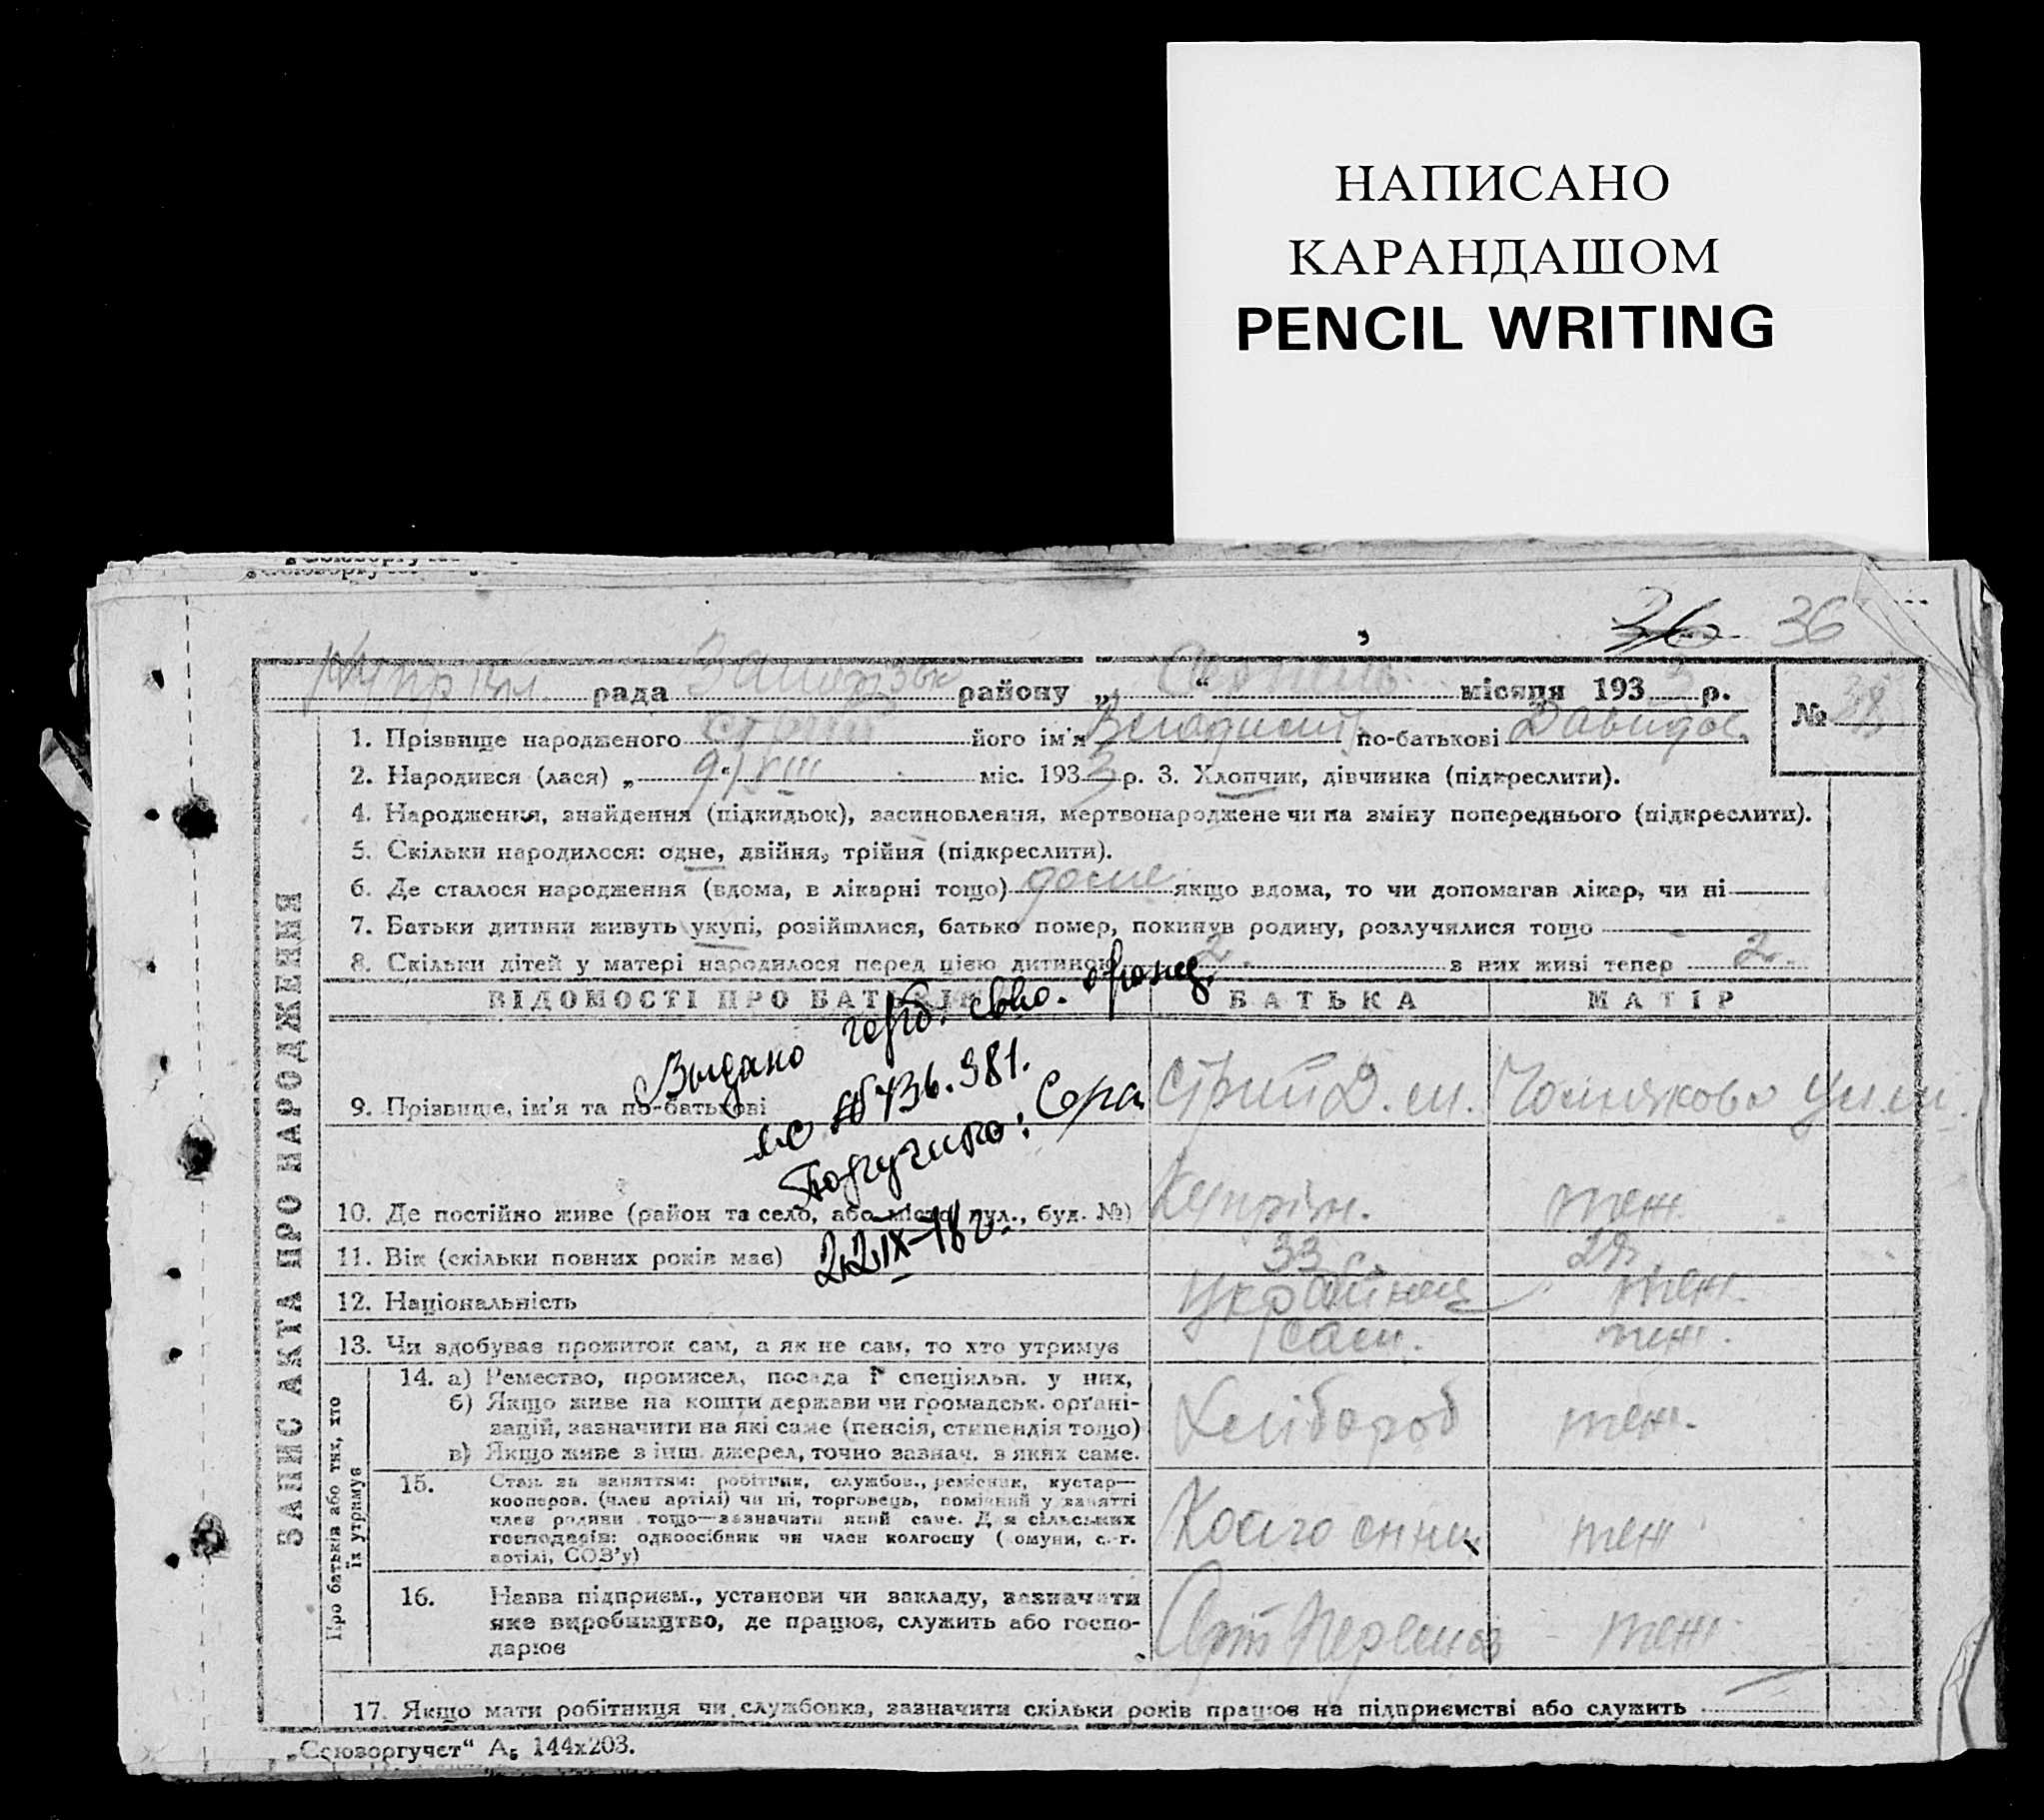 НАПИСАНО
КАРАНДАШОМ
PENCIL WRITING
36 36
рада району „ “ місяця 1933 р.
№ 38
1. Прізвище народженого Стрий його ім'я по-батькові Давидов.
2. Народився (лася) „ 9 “ VIII міс. 1933 р. 3. Хлопчик, дівчинка (підкреслити).
4. Народження, знайдення (підкидьок), засиновлення, мертвонароджене чи на зміну попереднього (підкреслити).
5. Скільки народилося: одне, двійня, трійня (підкреслити).
6. Де сталося народження (вдома, в лікарні тощо) дома якщо вдома, то чи допомагав лікар, чи ні
7. Батьки дитини живуть укупі, розійшлися, батько помер, покинув родину, розлучилися тощо
8. Скільки дітей у матері народилося перед цією дитиною 2. з них живі тепер 2.
ВІДОМОСТІ ПРО БАТЬКІВ БАТЬКА МАТІР
Выдано герб. сво.
№ 436.981.
Получила: Сера
22 IX-48 г.
9. Прізвище, ім'я та по-батькові Стрий Д. М.
10. Де постійно живе (район та село, або місто, вул., буд. №) Купріян. теж
11. Вік (скільки повних років має) 33 29
12. Національність Українец теж.
13. Чи здобуває прожиток сам, а як не сам, то хто утримує сам. теж.
ЗАПИС АКТА ПРО НАРОДЖЕННЯ
Про батьків або тих, хто
їх утримує
14. а) Ремество, промисел, посада і спеціяльн. у них,
б) Якщо живе на кошти держави чи громадськ. орґані-
зацій, зазначити на які саме (пенсія, стипендія тощо)
в) Якщо живе з інш. джерел, точно зазнач. з яких саме.
Хлібороб теж.
15. Стан за заняттям: робітник, службов., ремісник, кустар—
кооперов. (член артілі) чи ні, торговець, помічний у занятті
член родини тощо—зазначити який саме. Для сільських
господарів: одноосібник чи член колгоспу (комуни, с.-г.
артілі, СОЗ'у)
теж
16. Назва підприєм., установи чи закладу, зазначити
яке виробництво, де працює, служить або госпо-
дарює
Арт теж
17. Якщо мати робітниця чи службовка, зазначити скільки років працює на підприємстві або служить
„Союзоргучет“ А₅ 144х203.